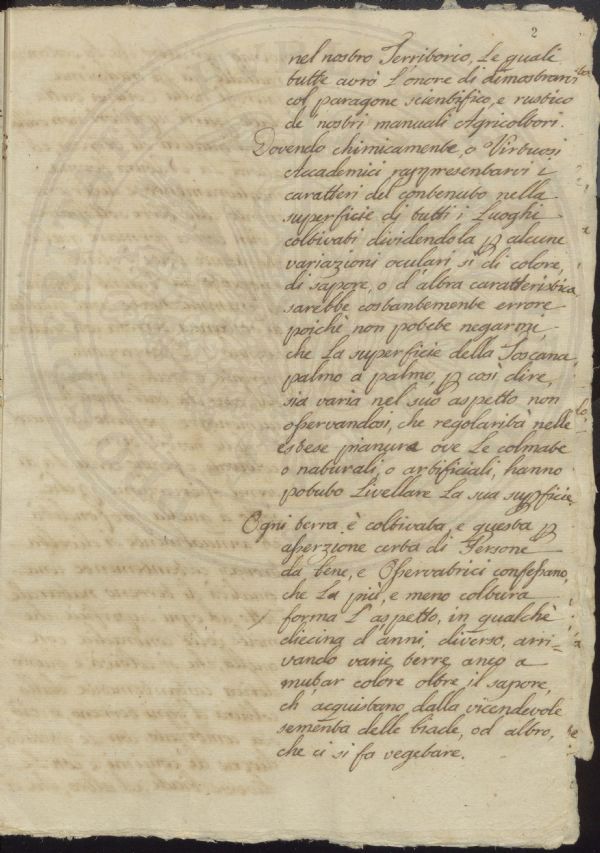 2
nel nostro Territorio, Le quali
tutte avrò L'onore di dimostrarvi
col paragone scientifico, e rustico
de nostri manuali Agricoltori.
Dovendo chimicamente, o Virtuosi
Accademici rappresentarvi i
caratteri del contenuto nella
superficie di tutti i Luoghi
coltivati dividendola p alcune
variazioni oculari, sì di colore,
di sapore, o d'altra caratteristica
sarebbe costantemente errore
poichè non potete negarmi,
che La superficie della Toscana
palmo a palmo, p così dire,
sia varia nel suo aspetto non
osservandosi, che regolarità nelle
estese pianure ove Le colmate
o naturali, o artificiali, hanno
potuto Livellare La sua suppficie
Ogni terra è coltivata, e questa p
aserzione certa di Persone
da bene, e Osservatrici confessano,
che La più, e meno coltura
forma L'aspetto, in qualchè
diecina d'anni, diverso, arri-
vando varie terre anco a
mutar colore oltre il sapore,
ch'acquistano dalla vicendevole
sementa delle biade, od altro,
che ci si fa vegetare.